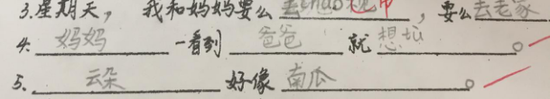 3.星期天，我和妈妈要么去chāo市，要么去老家
4.妈妈一看到爸爸就想
5.云朵好像南瓜。